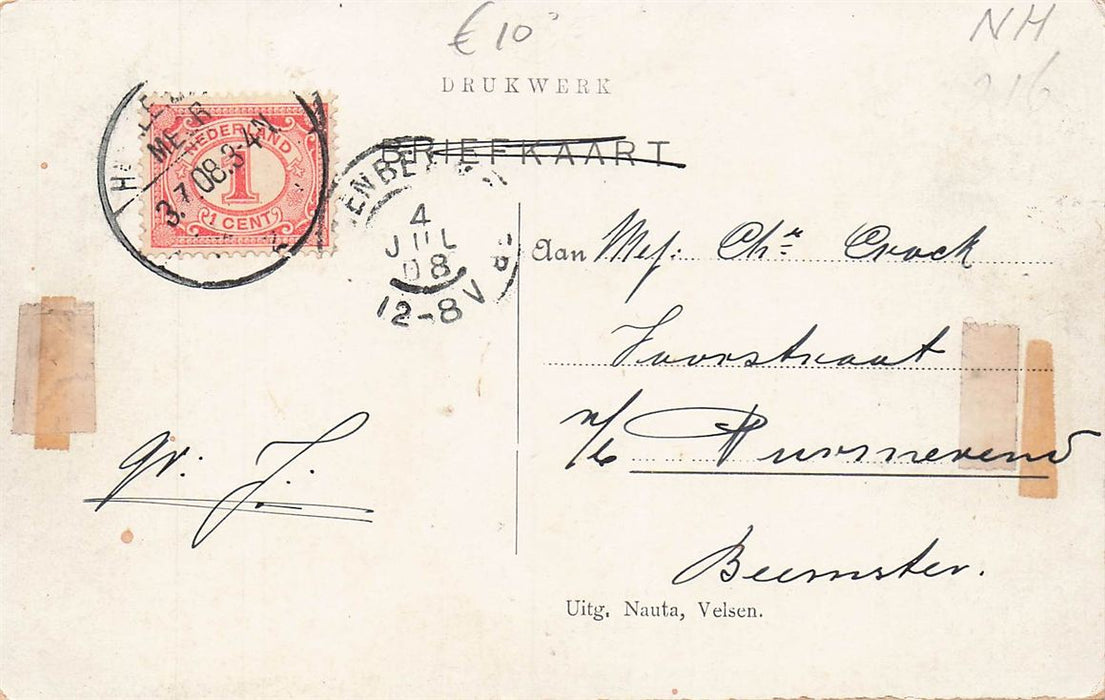 € 10
NH
216
DRUKWERK
BRIEFKAART
MEER
3.7.08.3-4N
NEDERLAND
1
1 CENT
4
JUL
08
12-8V
Aan Mej: Chr Crock
Voorstraat
n/b Purmerend
Beemster.
gr. J.
Uitg. Nauta, Velsen.